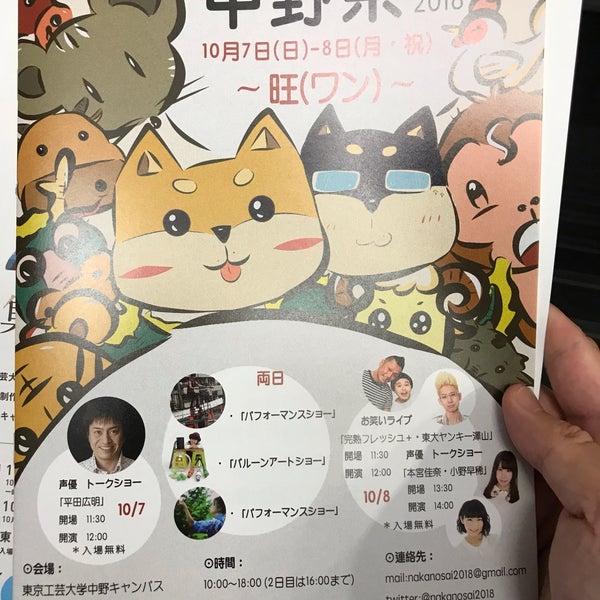 中野祭
2018
10月7日(日)-8日(月・祝)
～旺(ワン)～
両日
・「パフォーマンスショー」
・「バルーンアートショー」
・「パフォーマンスショー」
声優 トークショー
「平田広明」
開場 11:30
開演 12:00
＊入場無料
10/7
お笑いライブ
「完熟フレッシュ+・東大ヤンキー澤山」
開場 11:30
開演 12:00
10/8
声優 トークショー
「本宮佳奈・小野早稀」
開場 13:30
開演 14:00
＊入場無料
⊙会場：
東京工芸大学中野キャンパス
⊙時間：
10:00~18:00 (2日目は16:00まで)
⊙連絡先：
mail:nakanosai2018@gmail.com
twitter:@nakanosai2018